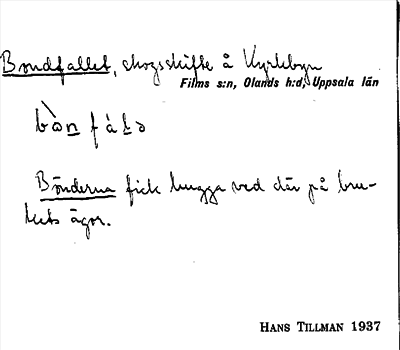 Bondfallet, skogsskifte å Kyrkbyn
Films s:n, Olands h:d, Uppsala län
Bönderna fick hugga ved där på bru-
kets ägor.
HANS TILLMAN 1937